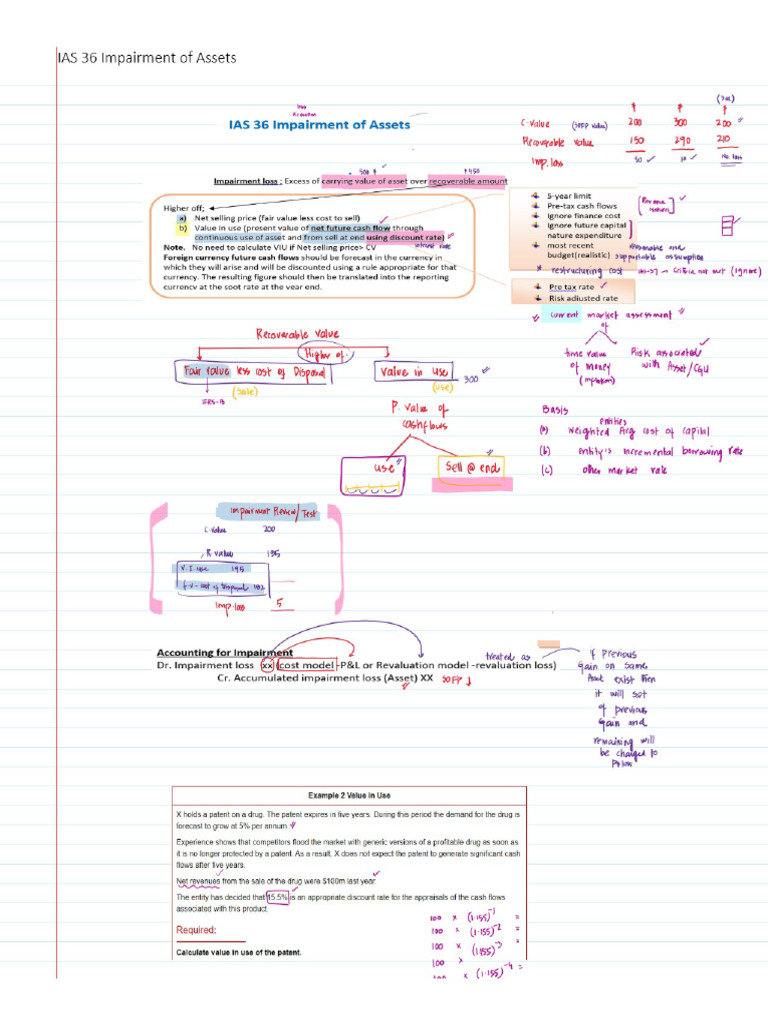 IAS 36 Impairment of Assets
IAS 36 Impairment of Assets
C.Value (SOFP value) 200 300 200
Recoverable value 150 290 210
Imp. loss 50 10 No loss
500 450
Impairment loss : Excess of carrying value of asset over recoverable amount
Higher off;
a) Net selling price (fair value less cost to sell)
b) Value in use (present value of net future cash flow through
continuous use of asset and from sell at end using discount rate)
Note. No need to calculate VIU if Net selling price> CV
Foreign currency future cash flows should be forecast in the currency in
which they will arise and will be discounted using a rule appropriate for that
currency. The resulting figure should then be translated into the reporting
currency at the soot rate at the year end.
5-year limit
Pre-tax cash flows
Ignore finance cost
Ignore future capital
nature expenditure
most recent
budget(realistic)
Reasonable and
supportable assumption
* restructuring cost IAS-37 → Criteria not met (ignore)
Pre tax rate
Risk adiusted rate
current market assessment
of
time value
of money
(inflation)
Risk associated
with Asset/CGU
Recoverable value
Higher of.
Fair value less cost of Disposal
Value in use
300
IFRS-13
(Sale)
(use)
P. value of
cashflows
use
Sell @ end
Basis
entities
(a) Weighted Avg cost of capital
(b) entity's incremental borrowing rate
(c) other market rate
Impairment Review/Test
C.value 200
R.value 195
V.I.use 195
F.V- cost of Disposal 192
Imp-loss 5
Accounting for Impairment
Dr. Impairment loss xx (cost model -P&L or Revaluation model -revaluation loss)
Cr. Accumulated impairment loss (Asset) XX SOFP ↓
treated as
if previous
Gain on same
Asset exist then
it will set
of previous
Gain and
remaining will
be charged to
Example 2 Value in Use
X holds a patent on a drug. The patent expires in five years. During this period the demand for the drug is
forecast to grow at 5% per annum.
Experience shows that competitors flood the market with generic versions of a profitable drug as soon as
it is no longer protected by a patent. As a result, X does not expect the patent to generate significant cash
flows after five years.
Net revenues from the sale of the drug were $100m last year.
The entity has decided that 15.5% is an appropriate discount rate for the appraisals of the cash flows
associated with this product
Required:
Calculate value in use of the patent.
100 x (1.155)-1 =
100 x (1.155)-2 =
100 x (1.155)-3 =
100 x
100 x (1.155)-4 =